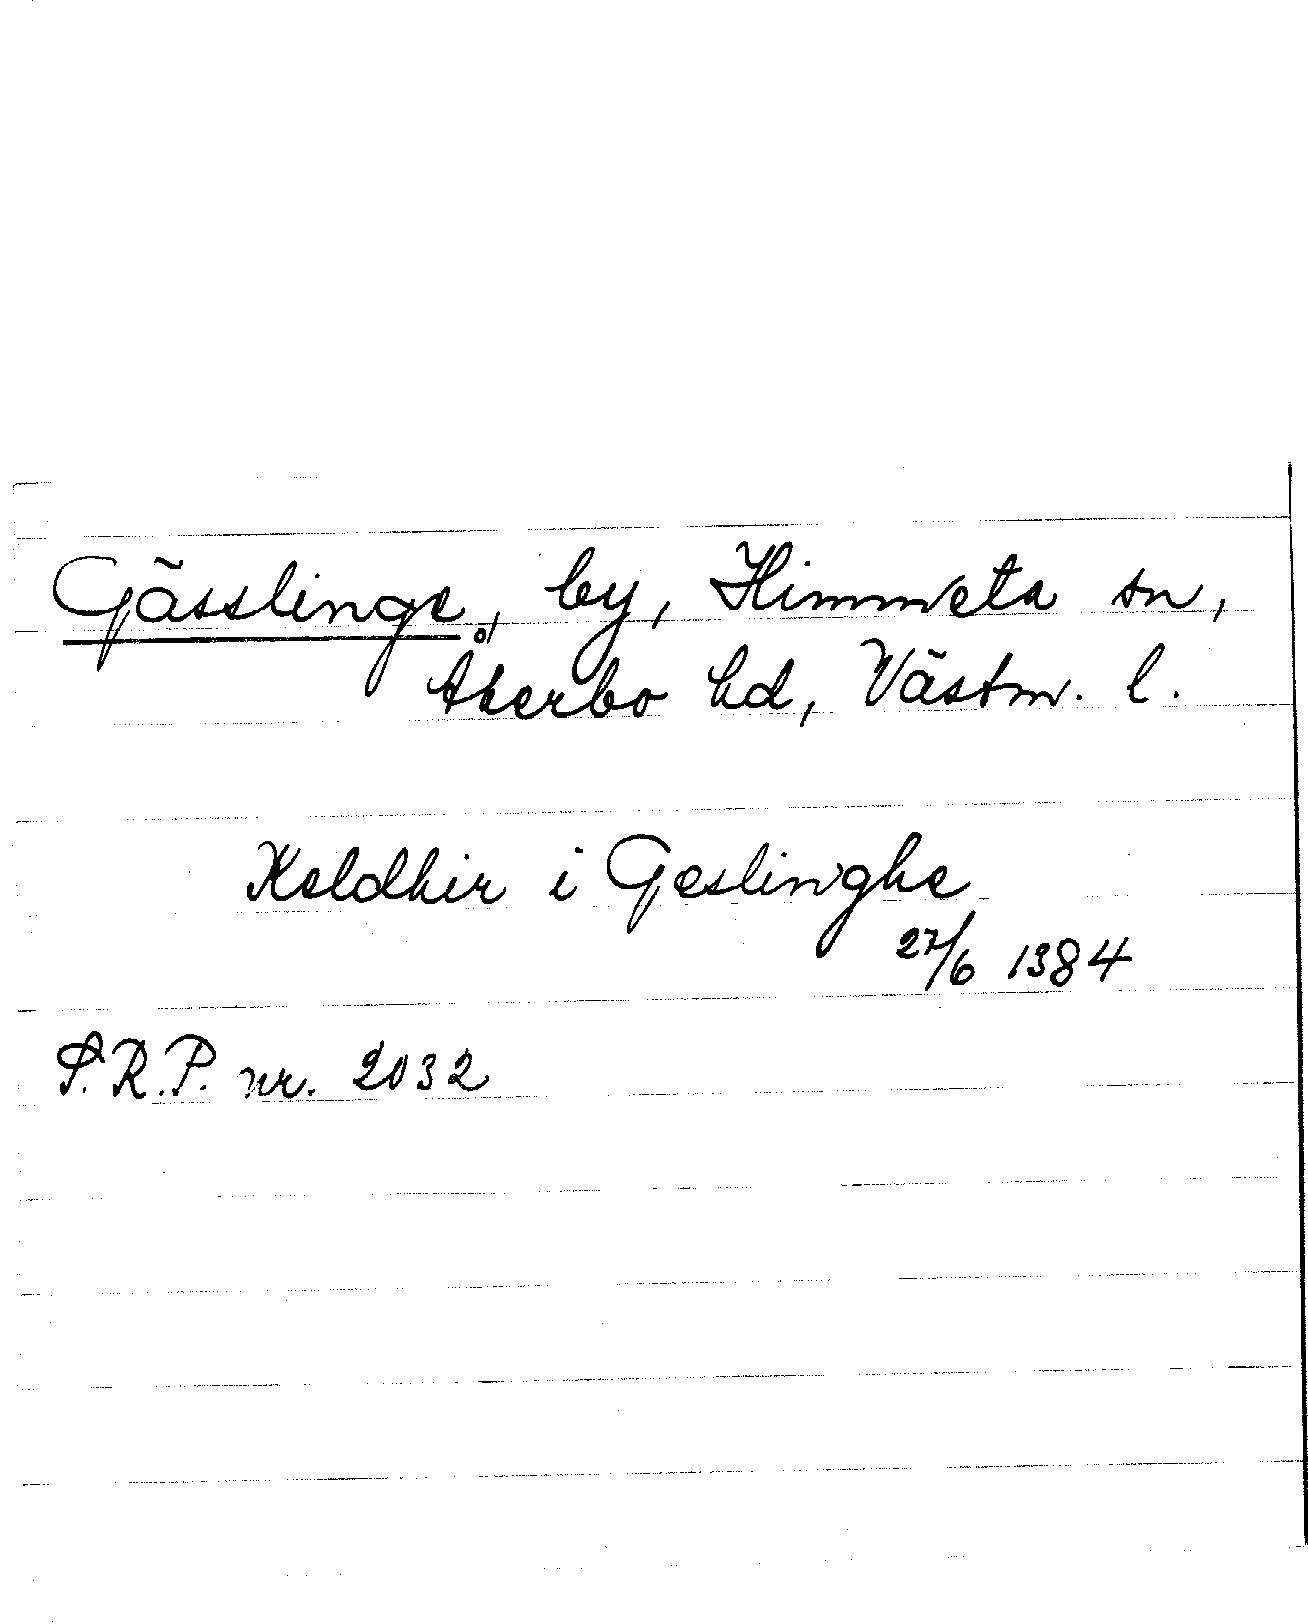 Gässlinge, by, Himmeta sn,
Åkerbo hd, Västm. l.
Keldhir i Geslinghe
27/6 1384
S.R.P. nr. 2032